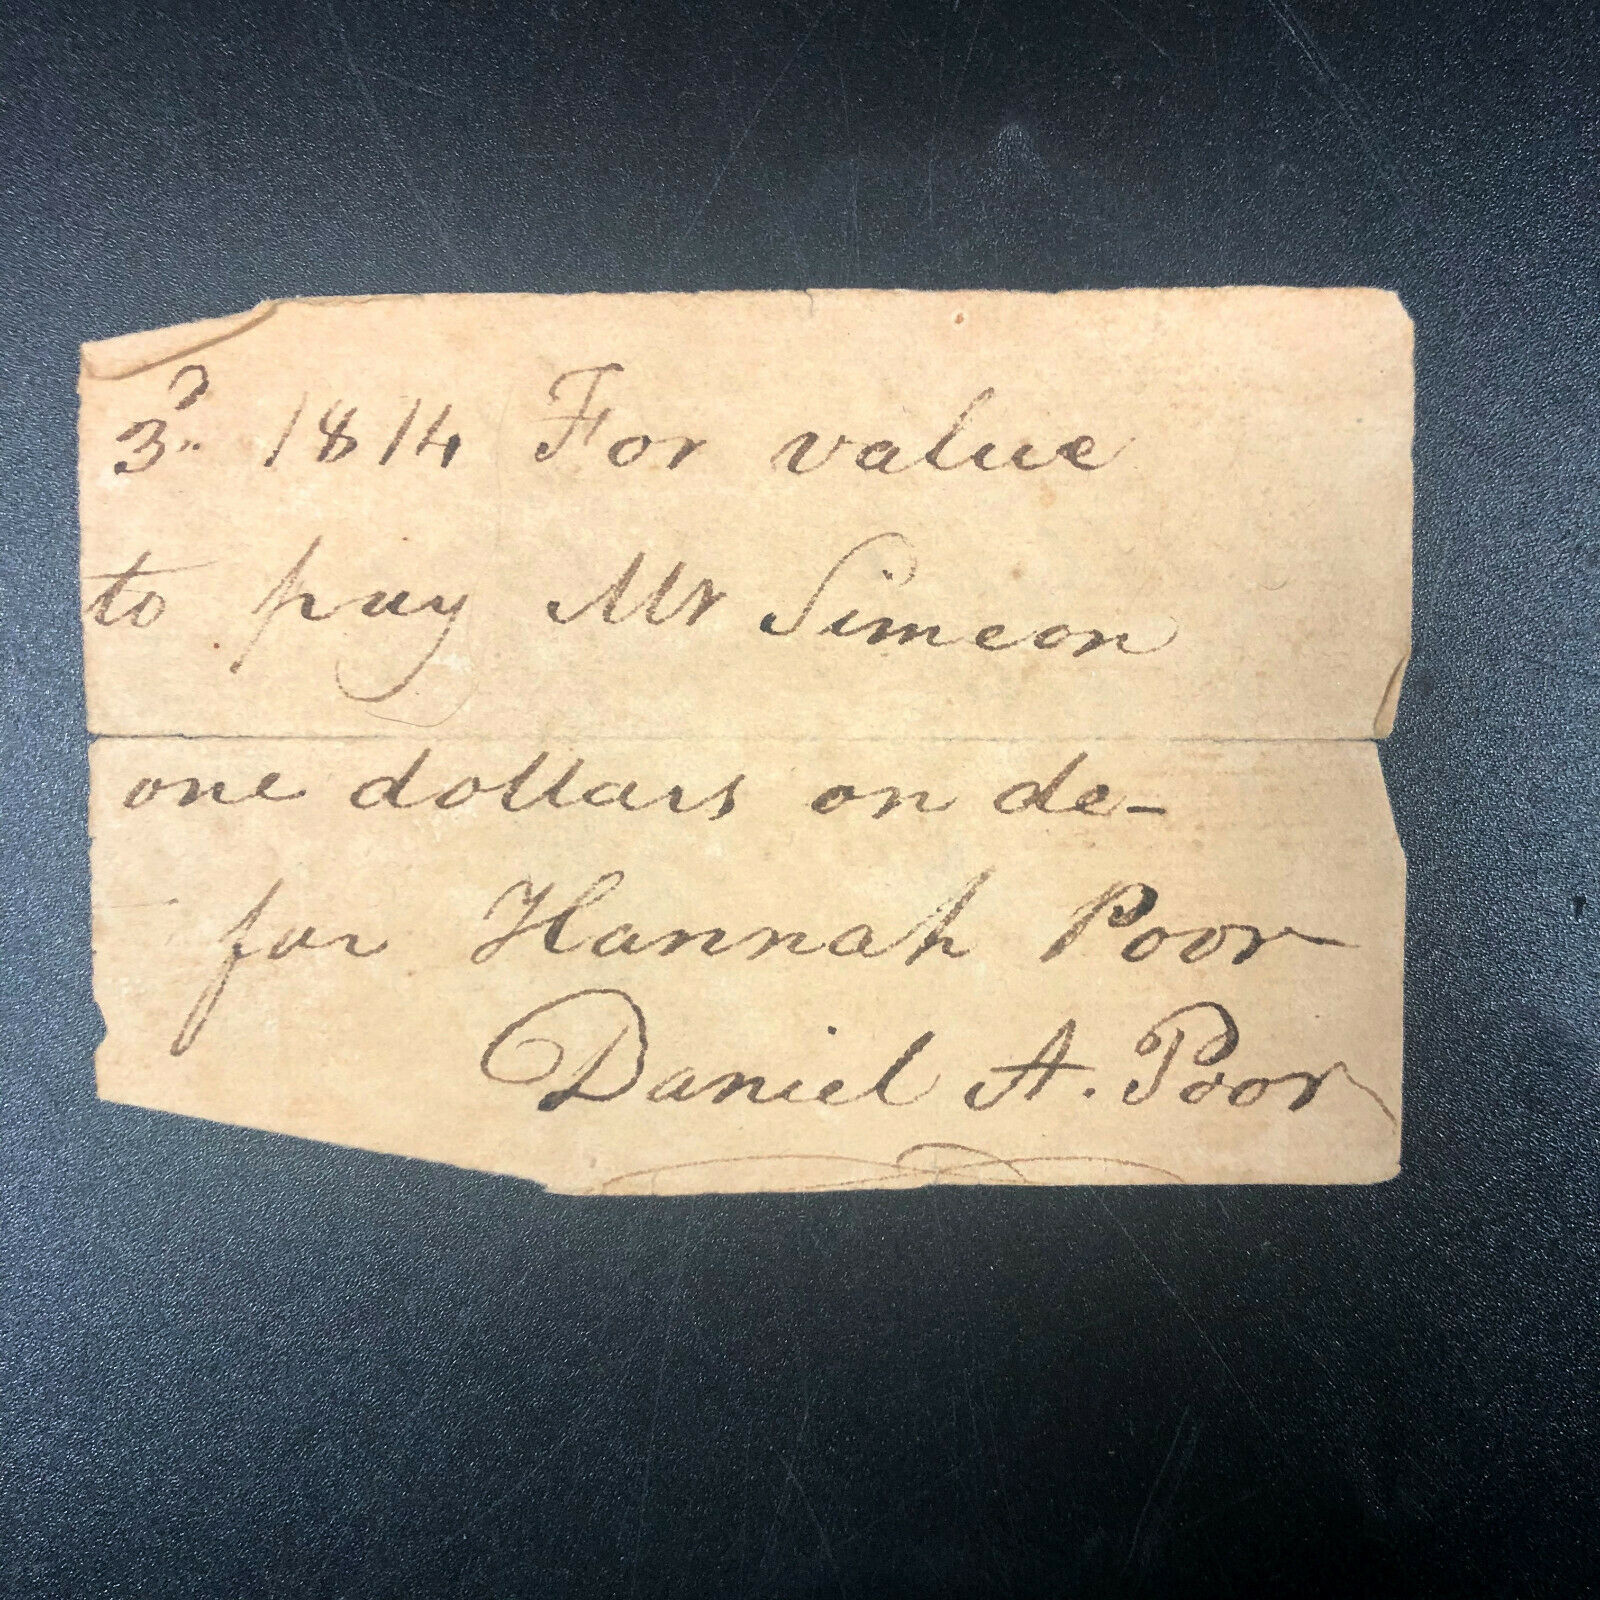 3d. 1814 For value
to pay Mr Simeon
one dollars on de-
for Hannah Poor
Daniel A. Poor